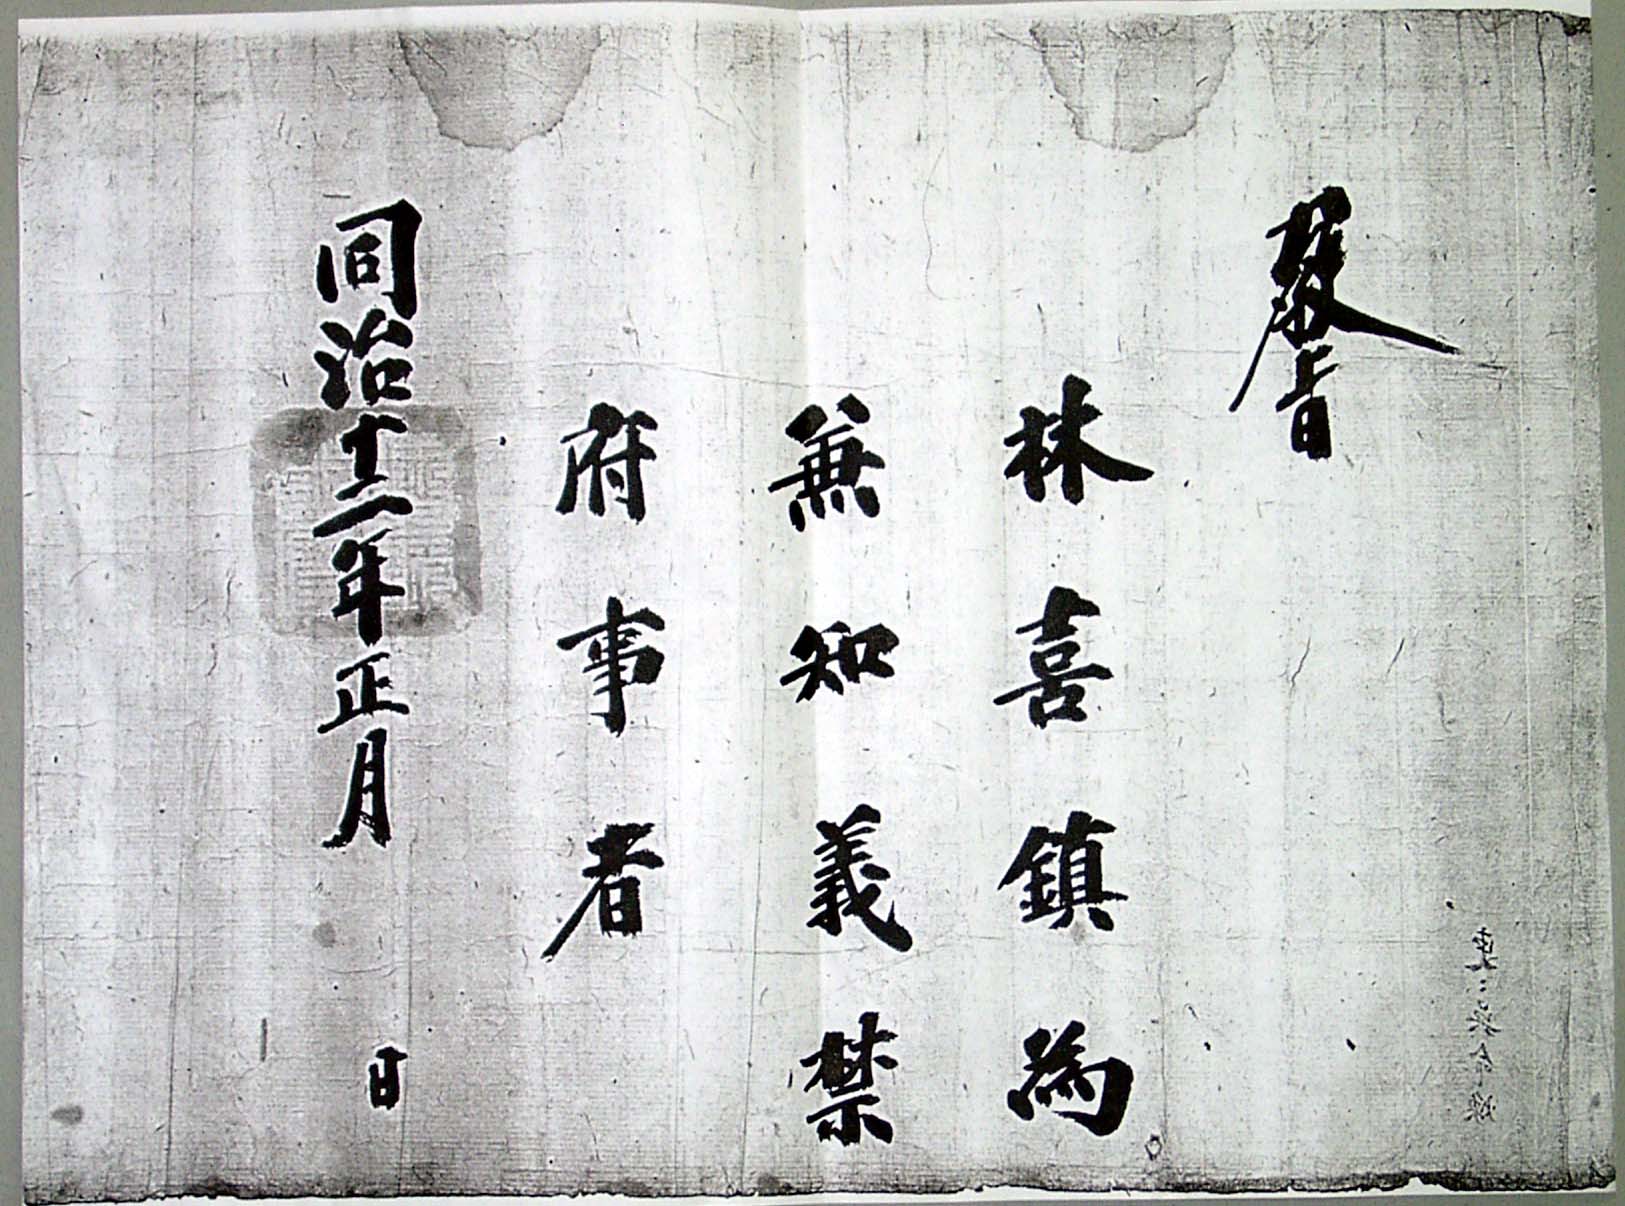 教旨
林喜鎮爲
兼知義禁
府事者
同治十二年正月 日